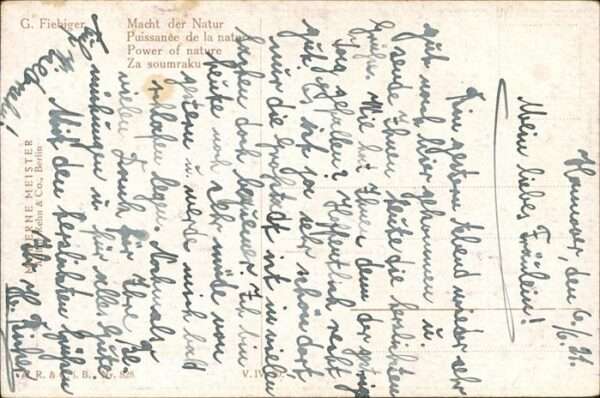 G. Fiebiger
Macht der Natur
Puissance de la nature
Power of nature
Za soumraku
MODERNE MEISTER
& Co., Berlin
V.
Hannover, den 6./6. 21.
Mein liebes Fräulein!
Bin gestern Abend wieder sehr
gut nach hier gekommen u.
sende Ihnen heute die herzlichsten
Grüße. Wie hat Ihnen denn der gestrige
Tag gefallen? Hoffentlich recht
gut. Es ist ja sehr schön dort
nur die Großstadt ist in vielen
Sachen doch bequemer. Ich bin
heute noch sehr müde von
gestern u. werde mich bald
schlafen legen. Nochmals
vielen Dank für Ihre Be-
mühungen u. für alles Gute
Mit den herzlichsten Grüßen
Ihr